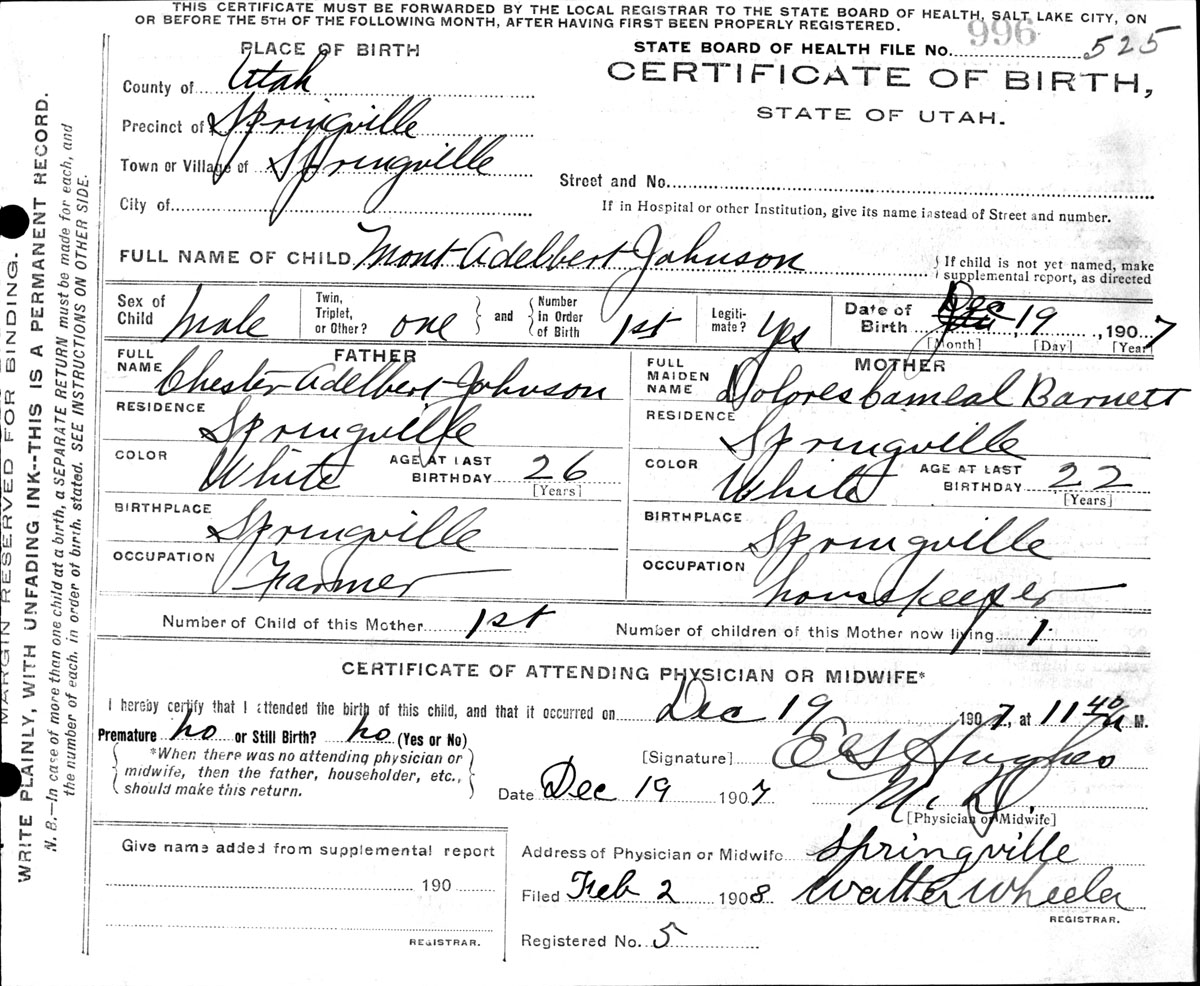 THIS CERTIFICATE MUST BE FORWARDED BY THE LOCAL REGISTRAR TO THE STATE BOARD OF HEALTH, SALT LAKE CITY, ON
OR BEFORE THE 5TH OF THE FOLLOWING MONTH, AFTER HAVING FIRST BEEN PROPERLY REGISTERED.
PLACE OF BIRTH
County of Utah
Precinct of Springville
Town or Village of Springville
City of
996
STATE BOARD OF HEALTH FILE No. 525
CERTIFICATE OF BIRTH,
STATE OF UTAH.
Street and No.
If in Hospital or other Institution, give its name instead of Street and number.
FULL NAME OF CHILD Mont Adelbert Johnson
If child is not yet named, make
supplemental report, as directed
Sex of Child Male
Twin, Triplet, or Other? one
and
Number in Order of Birth 1st
Legiti-mate? Yes
Date of Birth Dec 19, 1907
[Month] [Day] [Year]
FATHER
FULL NAME Chester Adelbert Johnson
RESIDENCE Springville
COLOR White AGE AT LAST BIRTHDAY 26
[Years]
BIRTHPLACE Springville
OCCUPATION Farmer
MOTHER
FULL MAIDEN NAME Dolores Barnett
RESIDENCE Springville
COLOR White AGE AT LAST BIRTHDAY 22
[Years]
BIRTHPLACE Springville
OCCUPATION housekeeper
Number of Child of this Mother 1st Number of children of this Mother now living 1
CERTIFICATE OF ATTENDING PHYSICIAN OR MIDWIFE*
I hereby certify that I attended the birth of this child, and that it occurred on Dec 19 1907, at 11 40 M.
Premature no or Still Birth? no (Yes or No)
*When there was no attending physician or
midwife, then the father, householder, etc.,
should make this return.
[Signature] Hughes
Date Dec 19 1907 M. D.
[Physician or Midwife]
Give name added from supplemental report
190
REGISTRAR.
Address of Physician or Midwife Springville
Filed Feb 2 1908 Walter Wheeler
REGISTRAR.
Registered No. 5
MARGIN RESERVED FOR BINDING.
WRITE PLAINLY, WITH UNFADING INK--THIS IS A PERMANENT RECORD.
N. B.—In case of more than one child at a birth, a SEPARATE RETURN must be made for each, and
the number of each, in order of birth, stated. SEE INSTRUCTIONS ON OTHER SIDE.